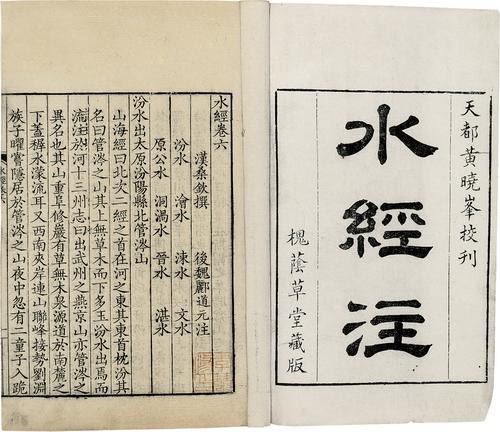 天都黃曉峯校刊
水經注
槐蔭草堂藏版
水經卷六
漢桑欽撰 後魏酈道元注
汾水 澮水 涑水 文水
原公水 洞渦水 晉水 湛水
汾水出太原汾陽縣北管涔山
山海經曰北次二經之首在河之東其東首枕汾其
名曰管涔之山其上無草木而下多玉汾水出焉而
流注於河十三州志曰出武州之燕京山亦管涔之
異名也其山重阜修巖有草無木泉源道於南麓之
下蓋稺水濛流耳又西南夾岸連山聯峰接勢劉淵
族子曜嘗隱居於管涔之山夜中忽有二童子入跪